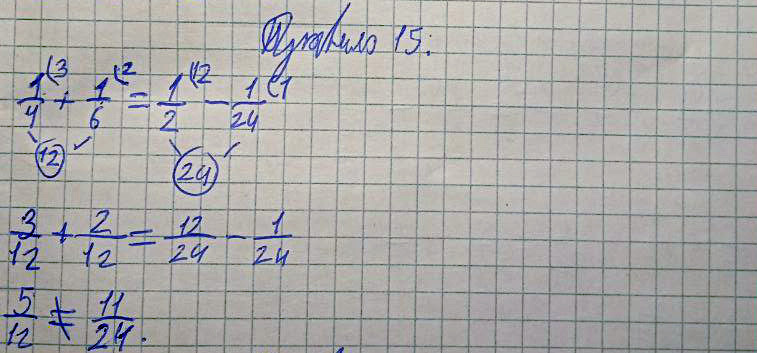 Правило 15:
1/4 (3 + 1/6 (2 = 1/2 (12 - 1/24 (1
12 24
3/12 + 2/12 = 12/24 - 1/24
5/12 ≠ 11/24.